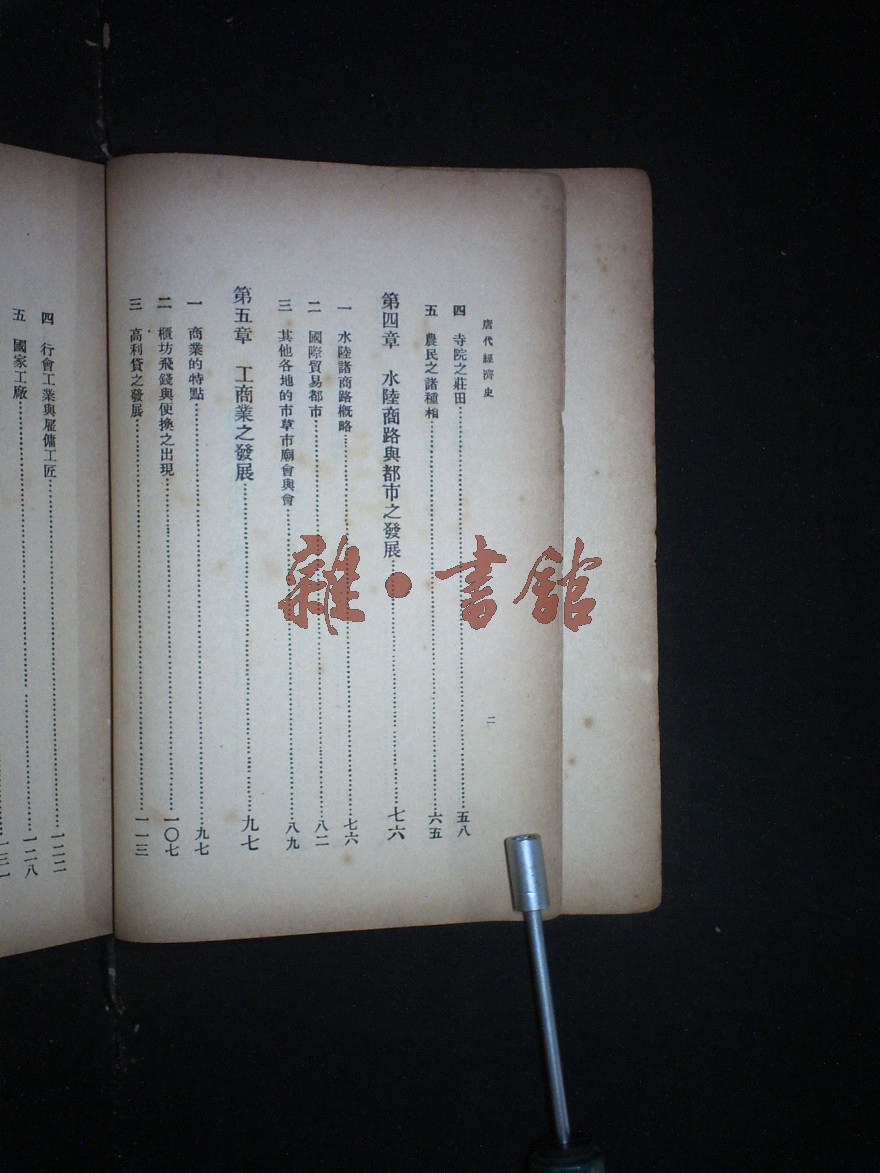 唐代經濟史
二
四 寺院之莊田……五八
五 農民之諸種相……六五
第四章 水陸商路與都市之發展……七六
一 水陸諸商路概略……七六
二 國際貿易都市……八二
三 其他各地的市草市廟會與會……八九
第五章 工商業之發展……九七
一 商業的特點……九七
二 櫃坊飛錢與便換之出現……一〇七
三 高利貸之發展……一一三
四 行會工業與雇傭工匠……一二二
五 國家工廠……一二八
一三一
雜·書館